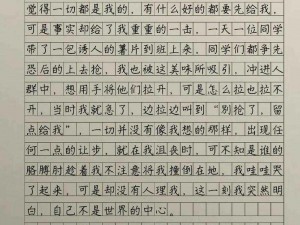 觉得一切都是我的，有什么好的都要先给我，
可是事实却给了我重重的一击，一天一位同学
带了一包诱人的薯片到班上来，同学们都争先
恐后的上去抢，我也被这美味所吸引，冲进人
群中，想用手将他们拉开，可是怎么拉也拉不
开，当时我就急了，边拉边叫到“别抢了，留
点给我”，一切并没有像我想的那样，出现任
何一点的让步，就在我沮丧时，可不知是谁的
胳膊肘趁着我不注意将我撞倒在地，我哇哇哭
了起来，可是却没有人理我，这一刻我突然明
白，自己不是世界的中心。